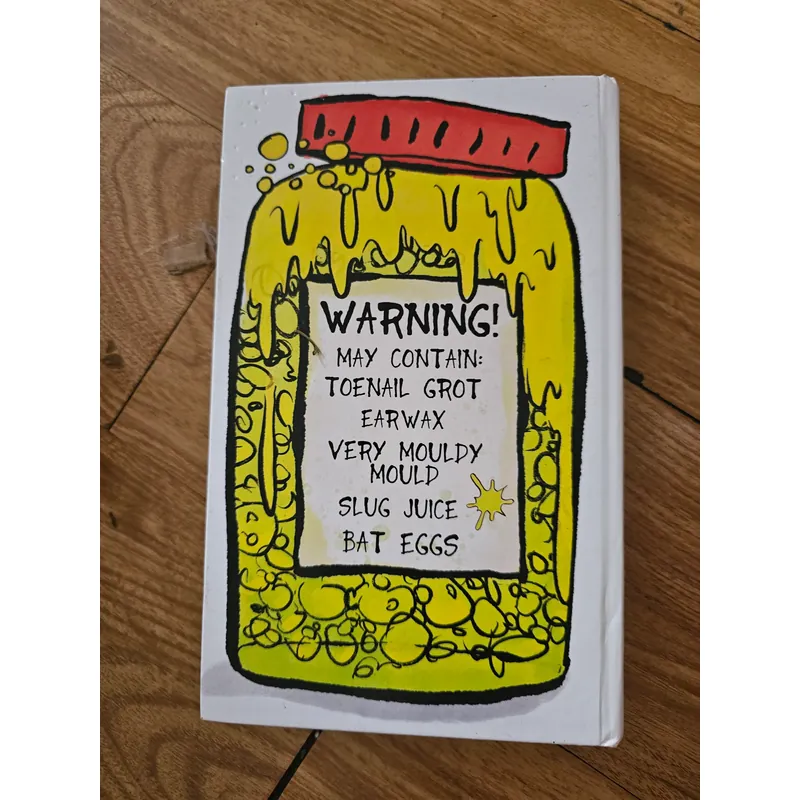 WARNING!
MAY CONTAIN:
TOENAIL GROT
EARWAX
VERY MOULDY
MOULD
SLUG JUICE
BAT EGGS